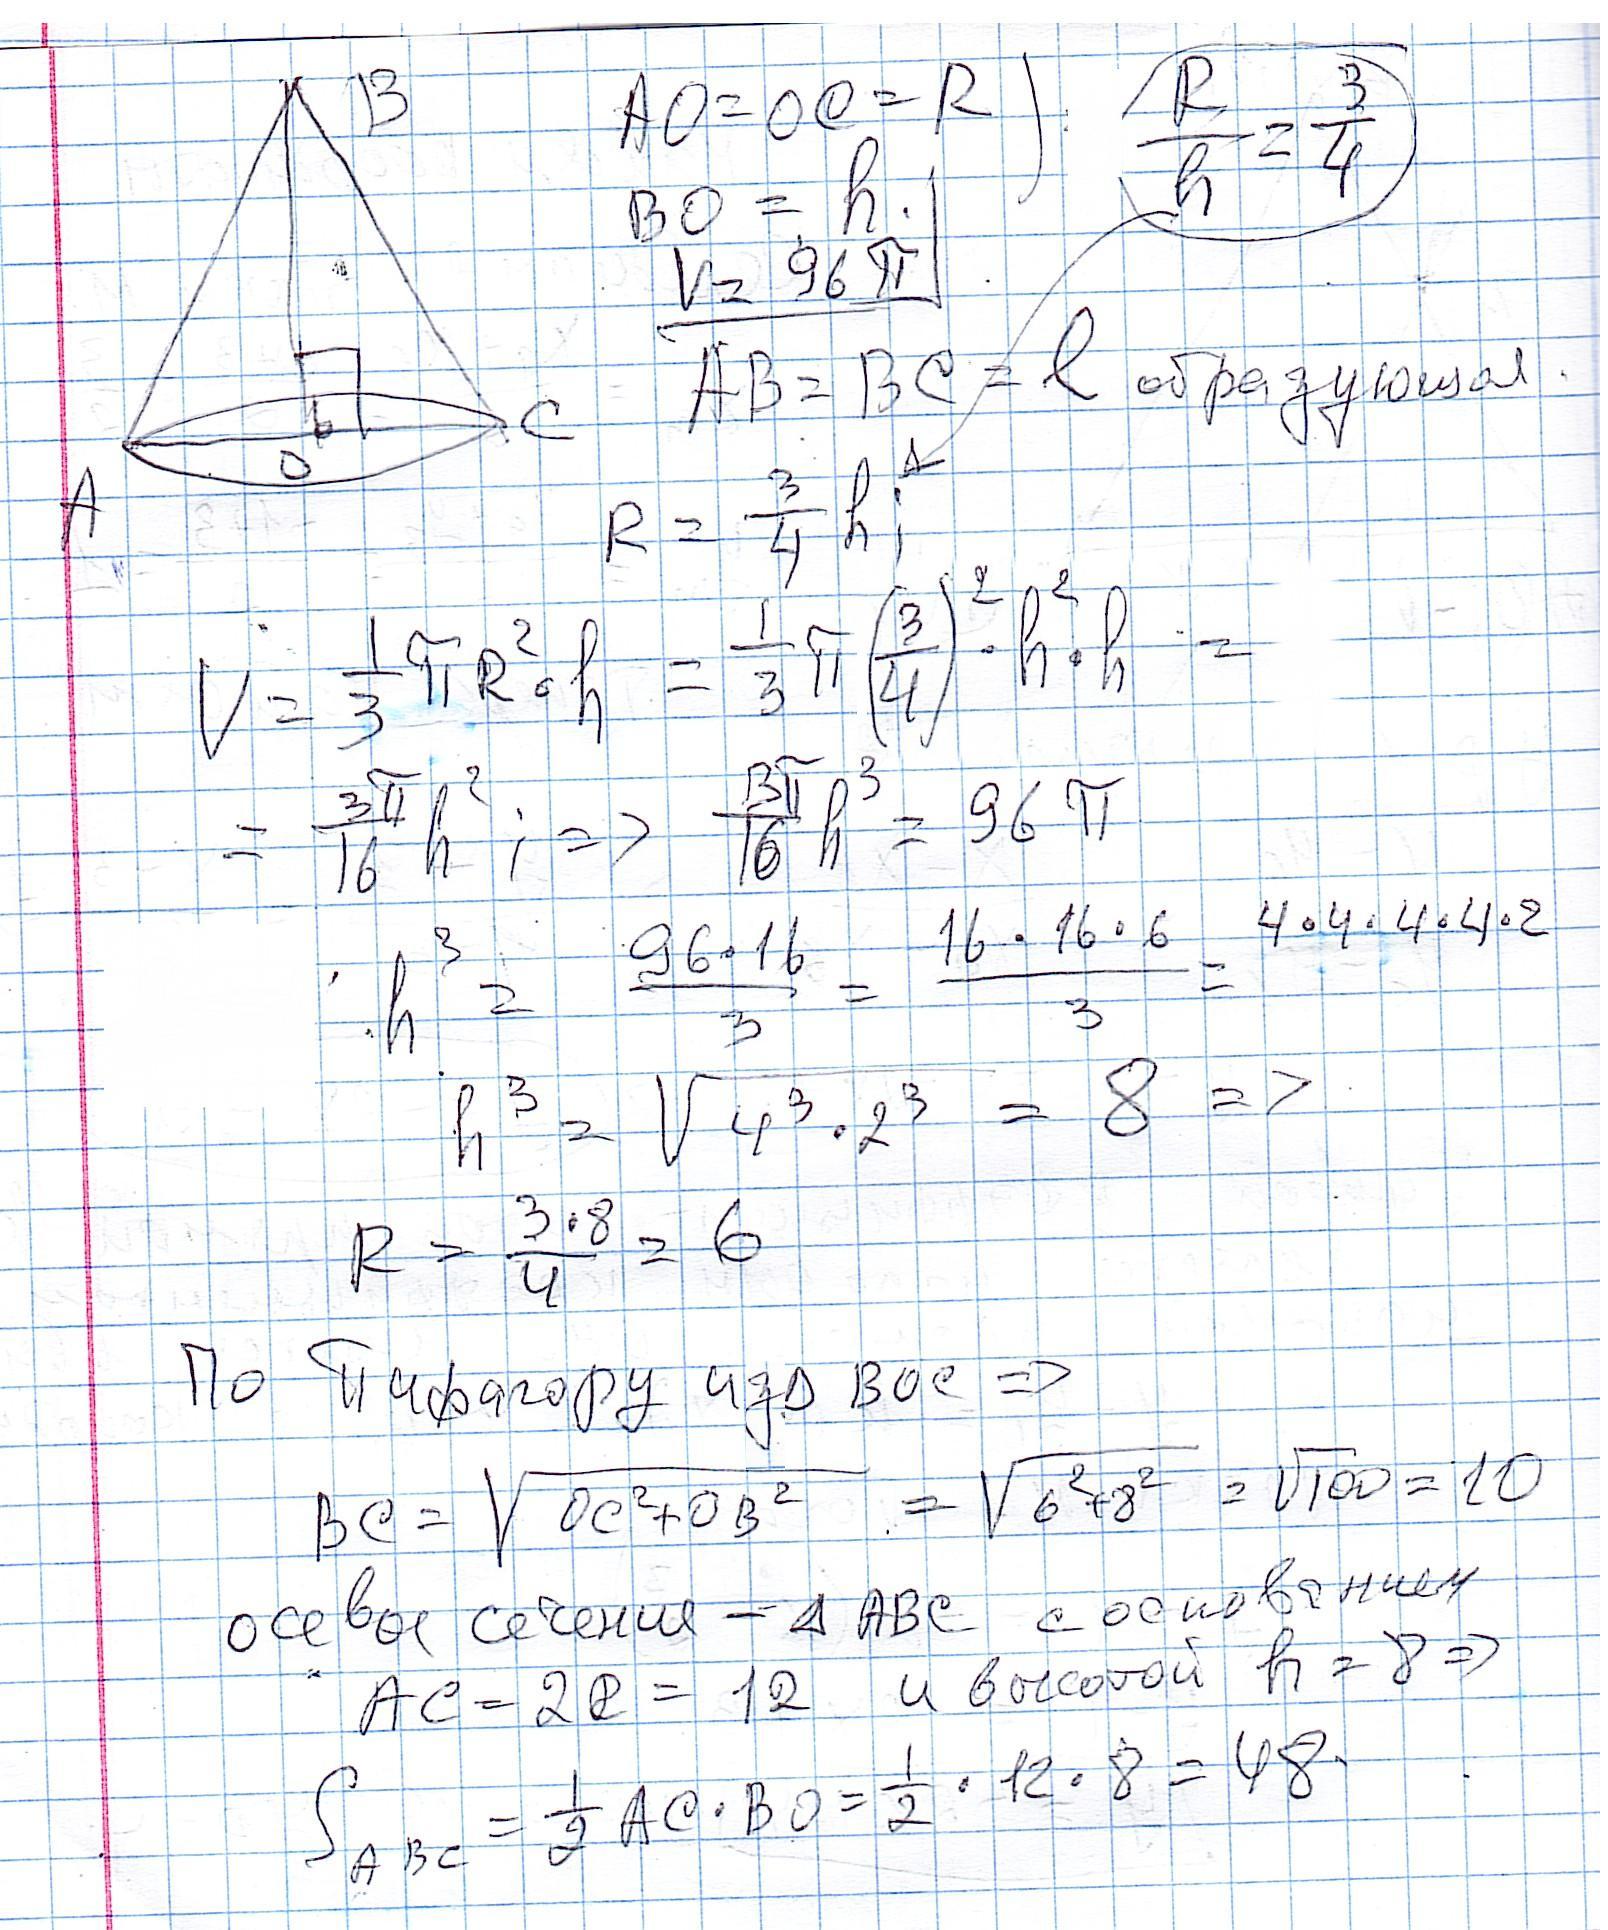 B
AO=OC=R
R/h = 3/4
BO = h.
V= 96π
AB=BC=l образующая.
A O C
R = 3/4 h;
V = 1/3 πR²·h = 1/3 π(3/4)²·h²·h =
= 3π/16 h² ; => 3π/16 h³ = 96π
h³ = 96·16/3 = 16·16·6/3 = 4·4·4·4·2
h³ = √4³·2³ = 8 =>
R = 3·8/4 = 6
По Пифагору из Δ BOC =>
BC = √OC²+OB² = √6²+8² = √100 = 10
осевое сечение – Δ ABC с основанием
AC = 2R = 12 и высотой h = 8 =>
S ABC = 1/2 AC·BO = 1/2·12·8 = 48.